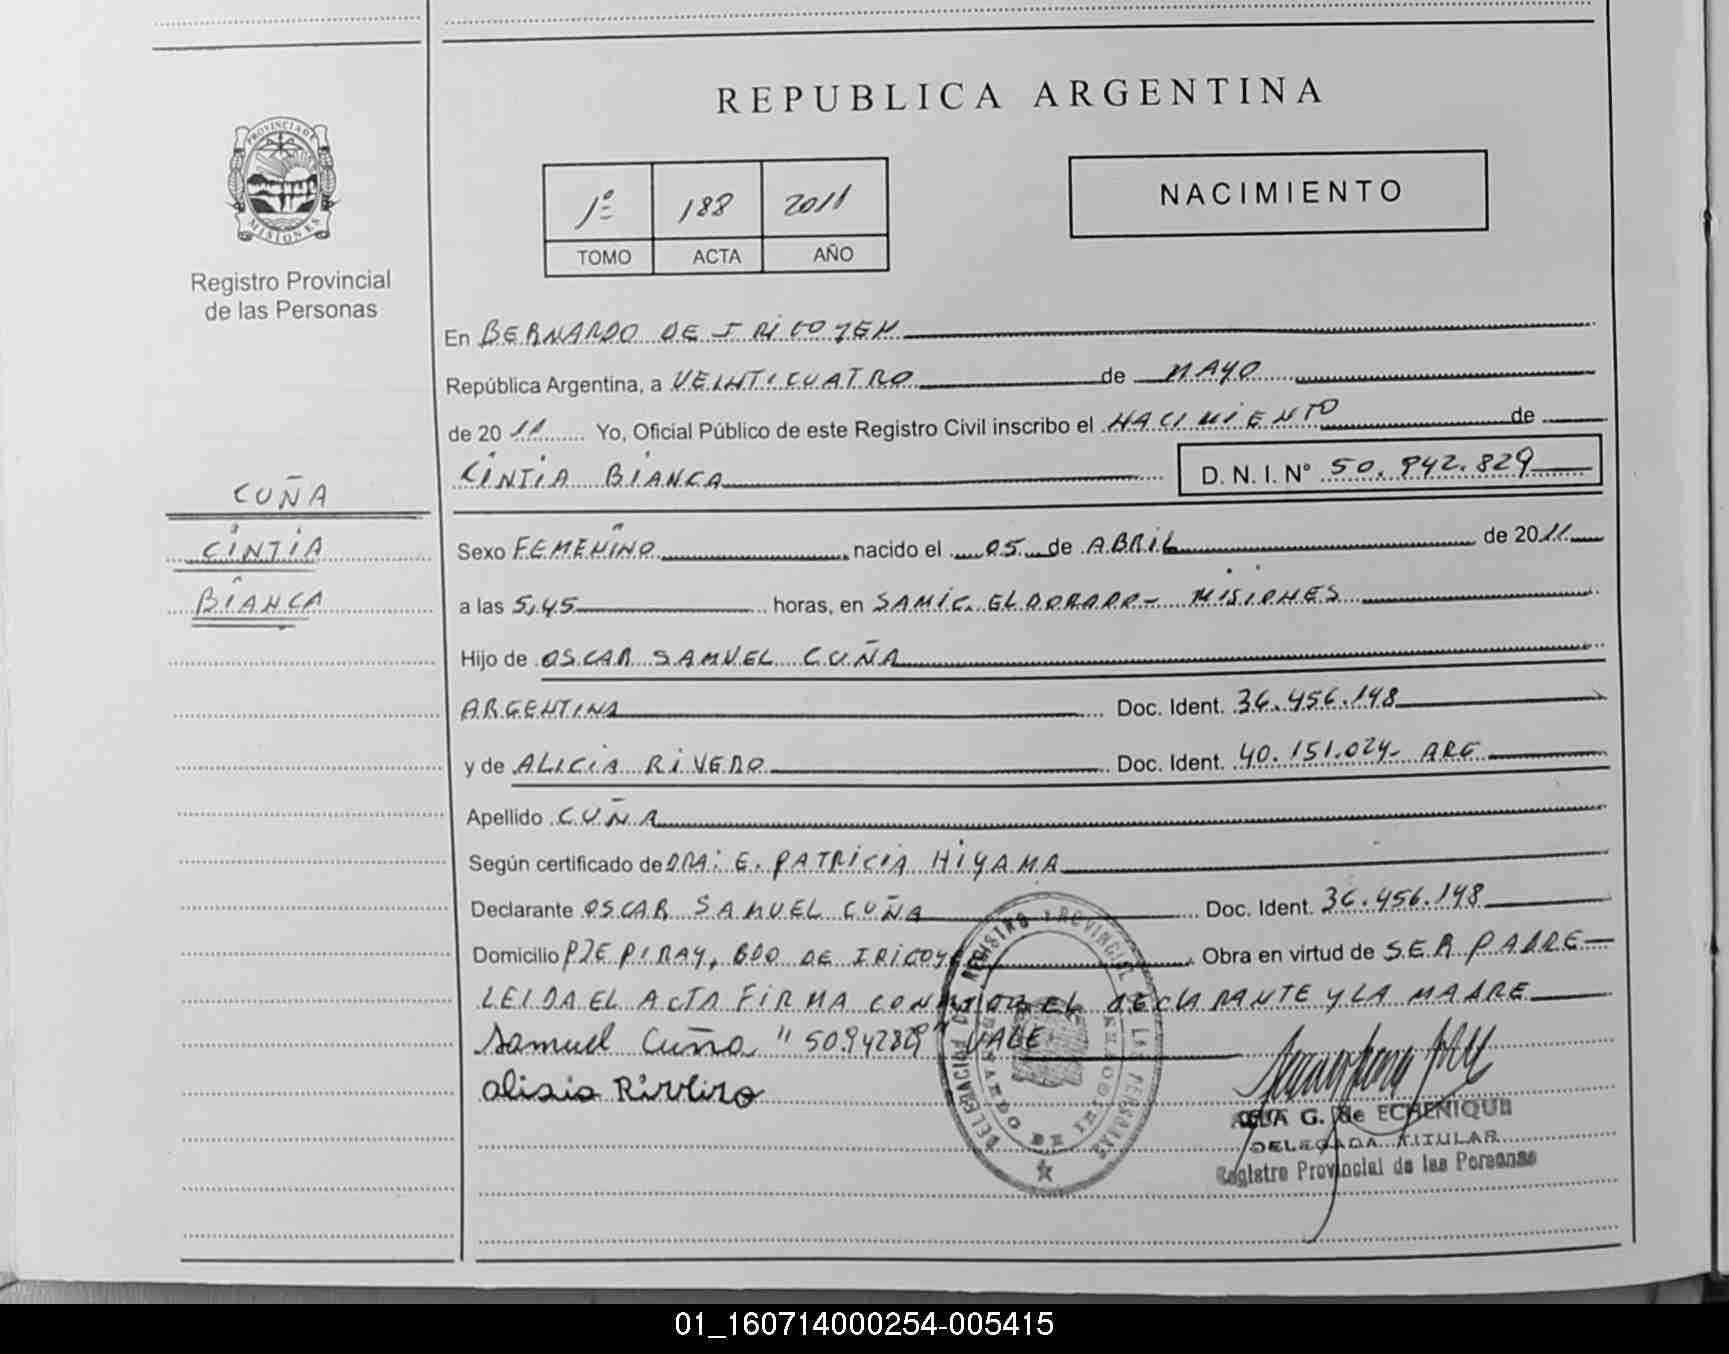 REPUBLICA ARGENTINA
PROVINCIA DE MISIONES
Registro Provincial
de las Personas
1º 188 2011
TOMO ACTA AÑO
NACIMIENTO
En BERNARDO DE IRICOYEN
República Argentina, a VEINTICUATRO de MAYO
de 20 11 Yo, Oficial Público de este Registro Civil inscribo el NACIMIENTO de
CINTIA BIANCA D. N. I. Nº 50.942.829
CUÑA
CINTIA
BIANCA
Sexo FEMENINO nacido el 05 de ABRIL de 2011
a las 5,45 horas, en SAMIC. ELDORADO - MISIONES
Hijo de OSCAR SAMUEL CUÑA
ARGENTINA Doc. Ident. 36.456.148
y de ALICIA RIVERO Doc. Ident. 40.151.024- ARG
Apellido CUÑA
Según certificado de DRA: E. PATRICIA HIYAMA
Declarante OSCAR SAMUEL CUÑA Doc. Ident. 36.456.148
Domicilio PJE PIRAY, BDO DE IRICOYE Obra en virtud de SER PADRE
LEIDA EL ACTA FIRMA CONMIGO EL DECLARANTE Y LA MADRE
Samuel Cuña "50942829" VALE
alisia Riveiro
G. de ECHENIQUE
DELEGADA TITULAR
Registro Provincial de las Personas
REGISTRO PROVINCIAL DE LAS PERSONAS
BERNARDO DE IRIGOYEN
01_160714000254-005415